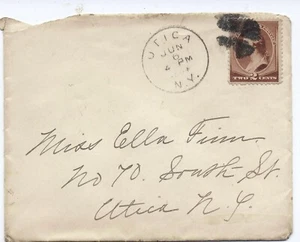 UTICA
JUN
6
4 PM
N.Y.
TWO 2 CENTS
Miss Ella Finn.
No 70. South St.
Utica N.Y.